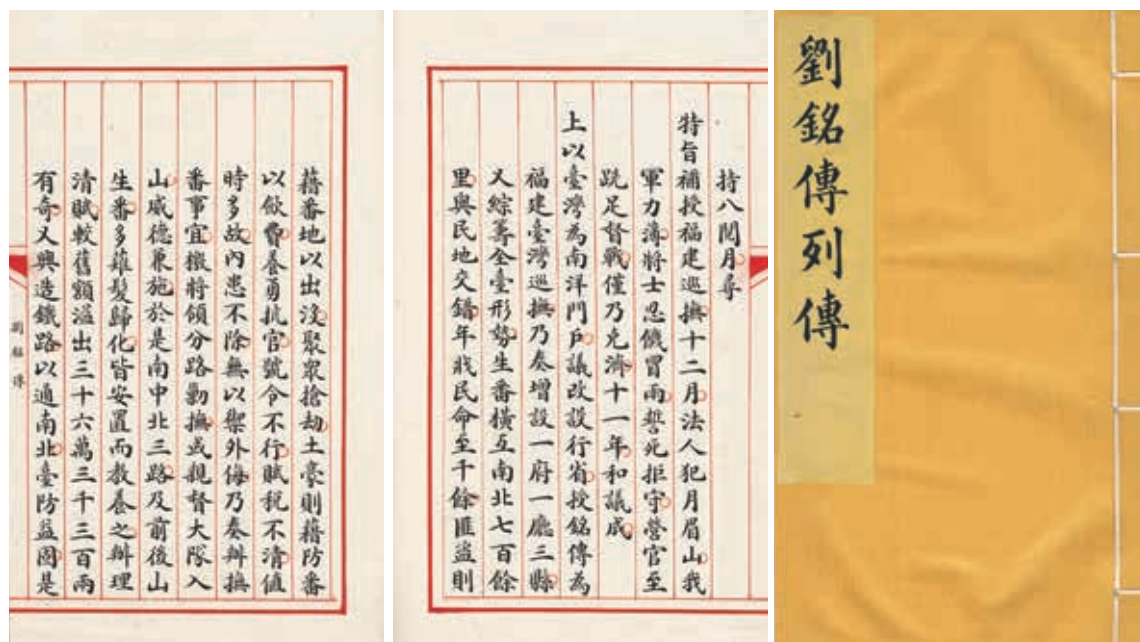 劉銘傳列傳
持八閱月尋
特旨補授福建巡撫十二月法人犯月眉山我
軍力薄將士忍饑冒雨誓死拒守營官至
跣足督戰僅乃克濟十一年和議成
上以臺灣為南洋門戶議改設行省授銘傳為
福建臺灣巡撫乃奏增設一府一廳三縣
又綜籌全臺形勢生番橫亙南北七百餘
里與民地交錯年戕民命至千餘匪盜則
藉番地以出沒聚眾搶劫土豪則藉防番
以斂費養勇抗官號令不行賦稅不清值
時多故內患不除無以禦外侮乃奏辦撫
番事宜檄將領分路勦撫或親督大隊入
山威德兼施於是南中北三路及前後山
生番多薙髮歸化皆安置而教養之辦理
清賦較舊額溢出三十六萬三千三百兩
有奇又興造鐵路以通南北臺防益固是
劉銘傳